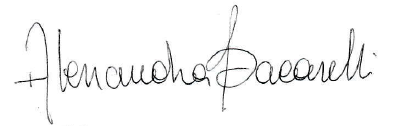 Alessandra Bacarelli